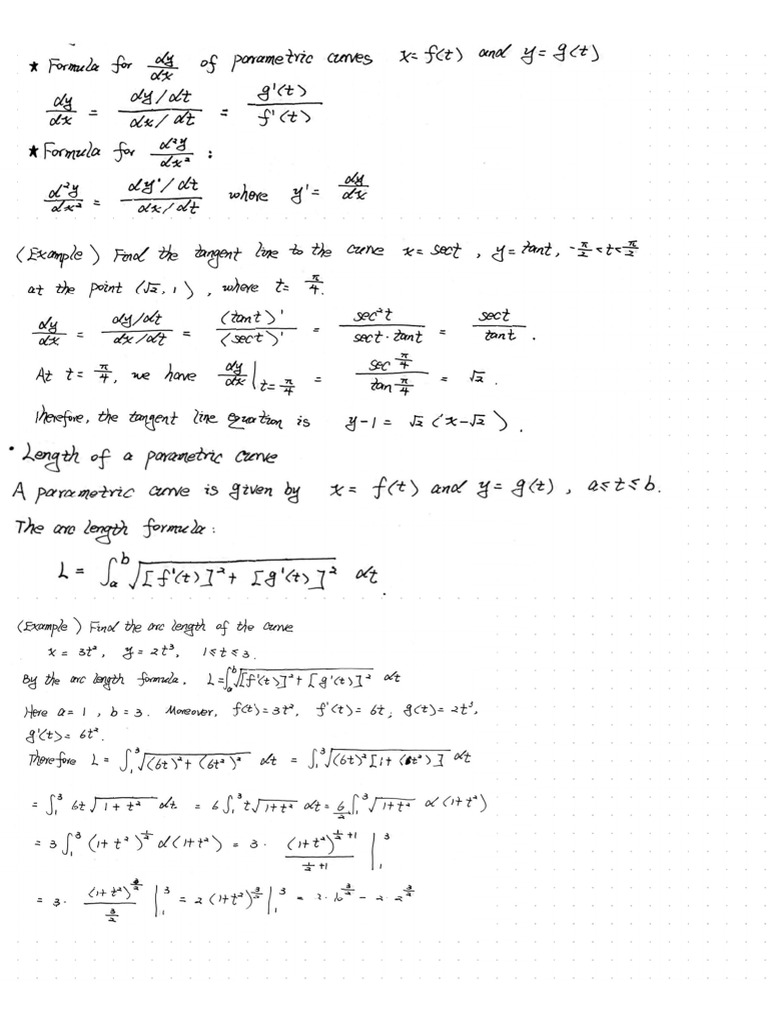 * Formula for dy/dx of parametric curves x = f(t) and y = g(t)
dy/dx = (dy/dt)/(dx/dt) = g'(t)/f'(t)
* Formula for d²y/dx² :
d²y/dx² = (dy'/dt)/(dx/dt) where y' = dy/dx
(Example) Find the tangent line to the curve x = sect, y = tant, -π/2 < t < π/2
at the point (√2, 1), where t = π/4.
dy/dx = (dy/dt)/(dx/dt) = (tant)'/(sect)' = sec²t/(sect·tant) = sect/tant.
At t = π/4, we have dy/dx|t=π/4 = (sec π/4)/(tan π/4) = √2.
Therefore, the tangent line equation is y-1 = √2 (x-√2).
• Length of a parametric curve
A parametric curve is given by x = f(t) and y = g(t), a ≤ t ≤ b.
The arc length formula:
L = ∫ₐᵇ √([f'(t)]² + [g'(t)]²) dt.
(Example) Find the arc length of the curve
x = 3t², y = 2t³, 1 ≤ t ≤ 3.
By the arc length formula, L = ∫ₐᵇ √([f'(t)]² + [g'(t)]²) dt
Here a = 1, b = 3. Moreover, f(t) = 3t², f'(t) = 6t, g(t) = 2t³,
g'(t) = 6t².
Therefore L = ∫₁³ √((6t)² + (6t²)²) dt = ∫₁³ √((6t)² [1 + (t²)]) dt
= ∫₁³ 6t√(1+t²) dt = 6∫₁³ t√(1+t²) dt = 6/2 ∫₁³ √(1+t²) d(1+t²)
= 3∫₁³ (1+t²)^(1/2) d(1+t²) = 3· (1+t²)^(1/2+1)/(1/2+1) |₁³
= 3· (1+t²)^(3/2)/(3/2) |₁³ = 2(1+t²)^(3/2) |₁³ = 2·10^(3/2) - 2·2^(3/2)